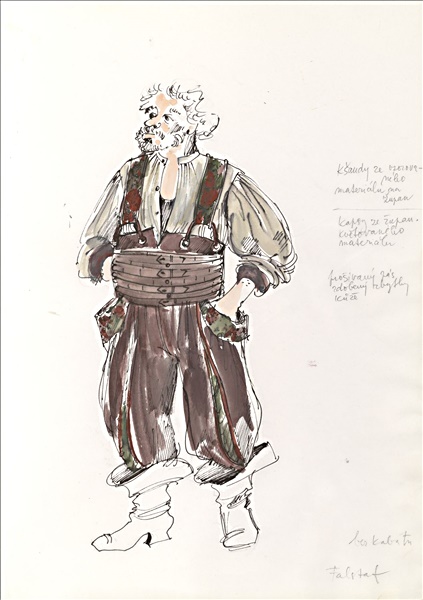 Kšandy ze vzorova-
ného
materiálu na
župan
kapsy ze župan.
květovaného
materiálu
prošívaný pás
zdobený
kůže
bez kabátu
Falstaf